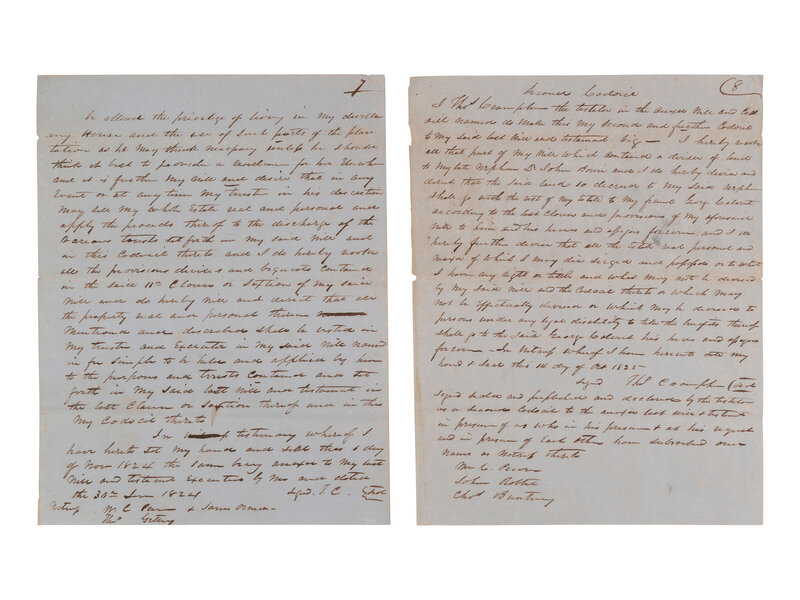 7
be allowed the privilege of living in my dwelling
House and the use of such parts of the plan
tation as he may think necessary unless he should
think it best to provide a
and it is further my Will and desire that in any
Event or at any time my trustee in his discretion
may sell my whole Estate real and personal and
apply the proceeds thereof to the discharge of the
various trusts set forth in my said Will and
in this Codicil thereto and I do hereby revoke
all the provisions devises and bequests contained
in the said 11th Clause or Section of my said
Will and do hereby will and direct that all
the property real and personal therein
Mentioned and described shall be vested in
My trustee and Executor in my said Will named
in fee simple to be held and applied by him
to the purposes and trusts contained and set
forth in my said last Will and testament in
the last Clause or Section thereof and in this
My Codicil thereto
In testimony whereof I
have hereto set my hand and seal this 1 day
of Nov 1824 the same being annexed to my last
Will and testament Executed by me and dated
the 30th June 1824
signed. T. C. Seal
Wm C & James
Thos Gittings
8
Second Codicil
I Thos Crampton the testator in the annexed Will and
named do make this my second and further Codicil
to my said last Will and testament Viz — I hereby revoke
all that part of my Will which contained a devise of land
to my late Nephew Dr John Bowie and I do hereby devise and
direct that the said land so devised to my said Nephew
shall go with the rest of my Estate to my friend George Calvert
according to the last Clause and provisions of my aforesaid
will to him and his heirs and assigns forever and I do
hereby further devise that all the Estate real personal and
mixed of which I may die seized and possessed or to which
I have any right or title and which may not be devised
by my said Will and the Codicil thereto or which may
not be effectually devised or which may be devised to
persons under any legal disability to take the benefits thereof
shall go to the said George Calvert his heirs and assigns
forever — In witness whereof I have hereunto set my
hand & seal this 14 day of Oct 1825 —
signed Thos Crampton Seal
signed sealed and published and declared by the testator
as a second Codicil to the annexed last will & testament
in presence of us who in his presence & at his request
and in presence of Each other have subscribed our
names as Witness thereto
Wm C.
John
Chas Bunting